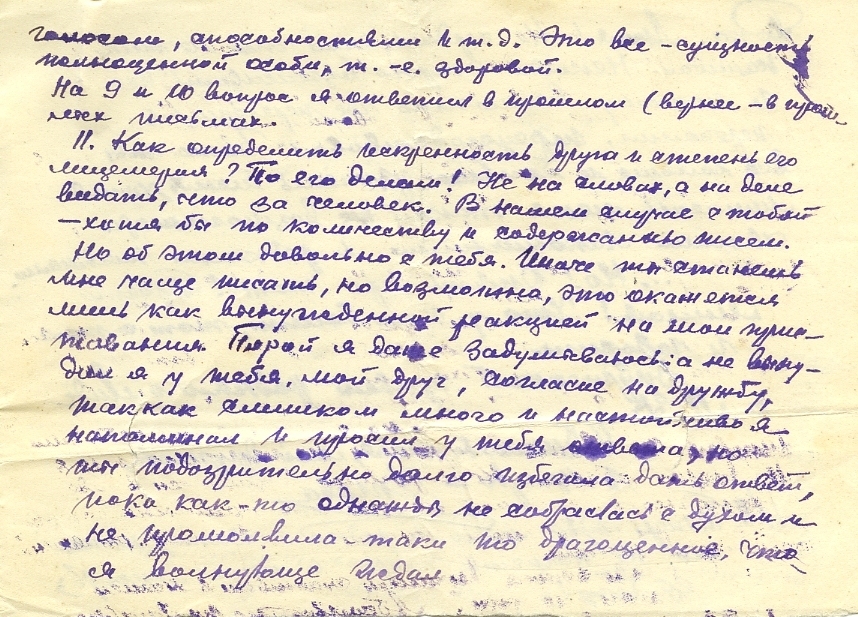 голосом, способностями и т.д. Это все – сущность
полноценной особи, т.-е. здоровой.
На 9 и 10 вопрос я ответил в прошлом (вернее – в прош-
лых письмах.
11. Как определить искренность друга и степень его
лицемерия? По его делам! Не на словах, а на деле
видать, что за человек. В нашем случае с тобой
– хотя бы по количеству и содержанию писем.
Но об этом довольно с тебя. Иначе ты станешь
мне чаще писать, но возможно, это окажется
лишь как вынужденной реакцией на мои приче-
тования. Порой я даже задумываюсь: а не выну-
дил я у тебя, мой друг, согласие на дружбу,
так как слишком много и настойчиво я
напоминал и просил у тебя ответа, но
ты подозрительно долго избегала дать ответ,
пока как-то однажды не собралась с духом и
не промолвила-таки то драгоценное, что
я волнующе ждал